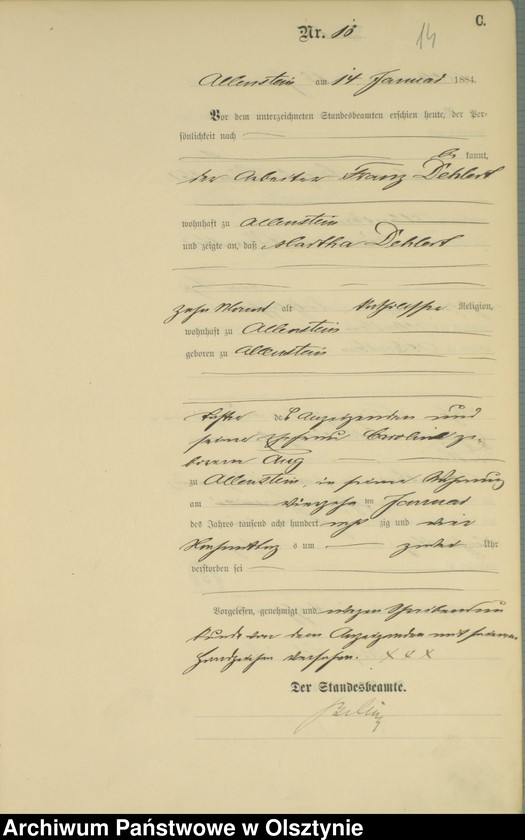 C.
Nr. 16
14
Allenstein am 14 Januar 1884.
Vor dem unterzeichneten Standesbeamten erschien heute, der Per-
sönlichkeit nach
be kannt,
der Arbeiter Franz Dehlert
wohnhaft zu Allenstein
und zeigte an, daß Martha Dehlert
zehn Monat alt katholischer Religion,
wohnhaft zu Allenstein
geboren zu Allenstein
Tochter des Anzeigenden und
seiner Ehefrau Caroline ge-
borenen
zu Allenstein, in seiner Wohnung
am vierzehn ten Januar
des Jahres tausend acht hundert acht zig und vier
Nachmittag s um zwei Uhr
verstorben sei
Vorgelesen, genehmigt und wegen Schreibensun
kunde von dem Anzeigenden mit seinem
Handzeichen versehen. x x x
Der Standesbeamte.
Archiwum Państwowe w Olsztynie